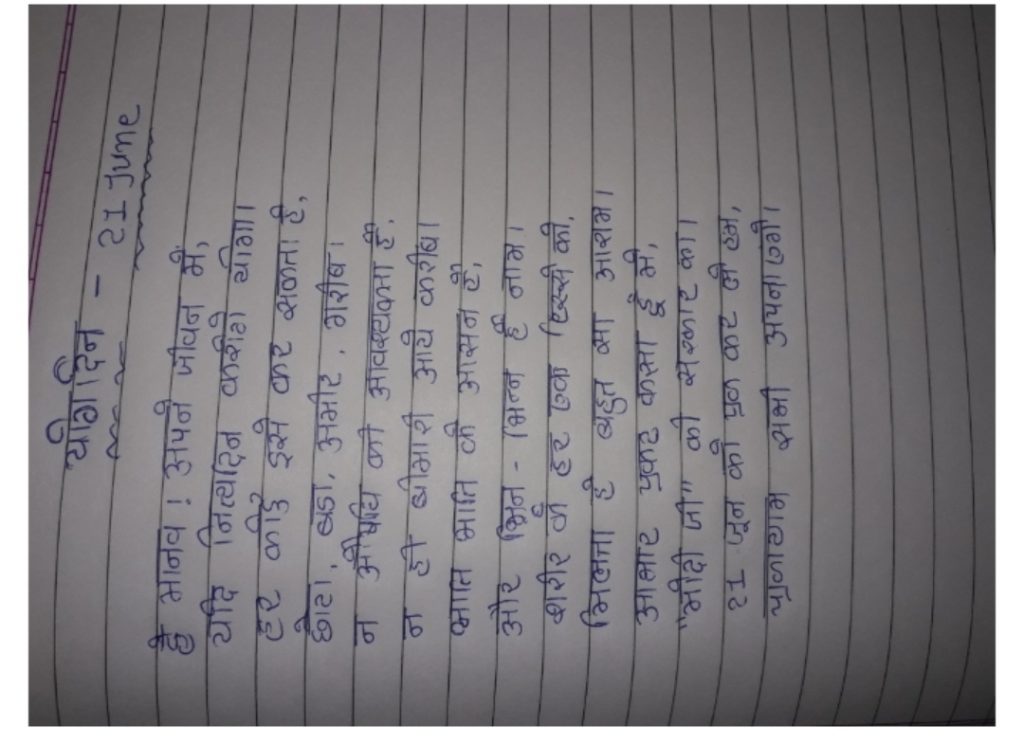 योग दिन - 21 June
हे मानव ! अपने जीवन में,
यदि नित्यदिन करोगे योगा।
हर कोई इसे कर सकता है,
छोटा, बडा, अमीर, गरीब।
न औषधि की आवश्यकता है,
न ही बीमारी आये करीब।
भाति भाति के आसन है,
और भिन्न - भिन्न है नाम।
शरीर के हर एक हिस्से को,
मिलता है बहुत सा आराम।
आभार प्रकट करता हूँ मैं,
"मोदी जी" की सरकार का।
21 जून को प्रण कर ले हम,
प्राणायाम सभी अपनाएंगे।